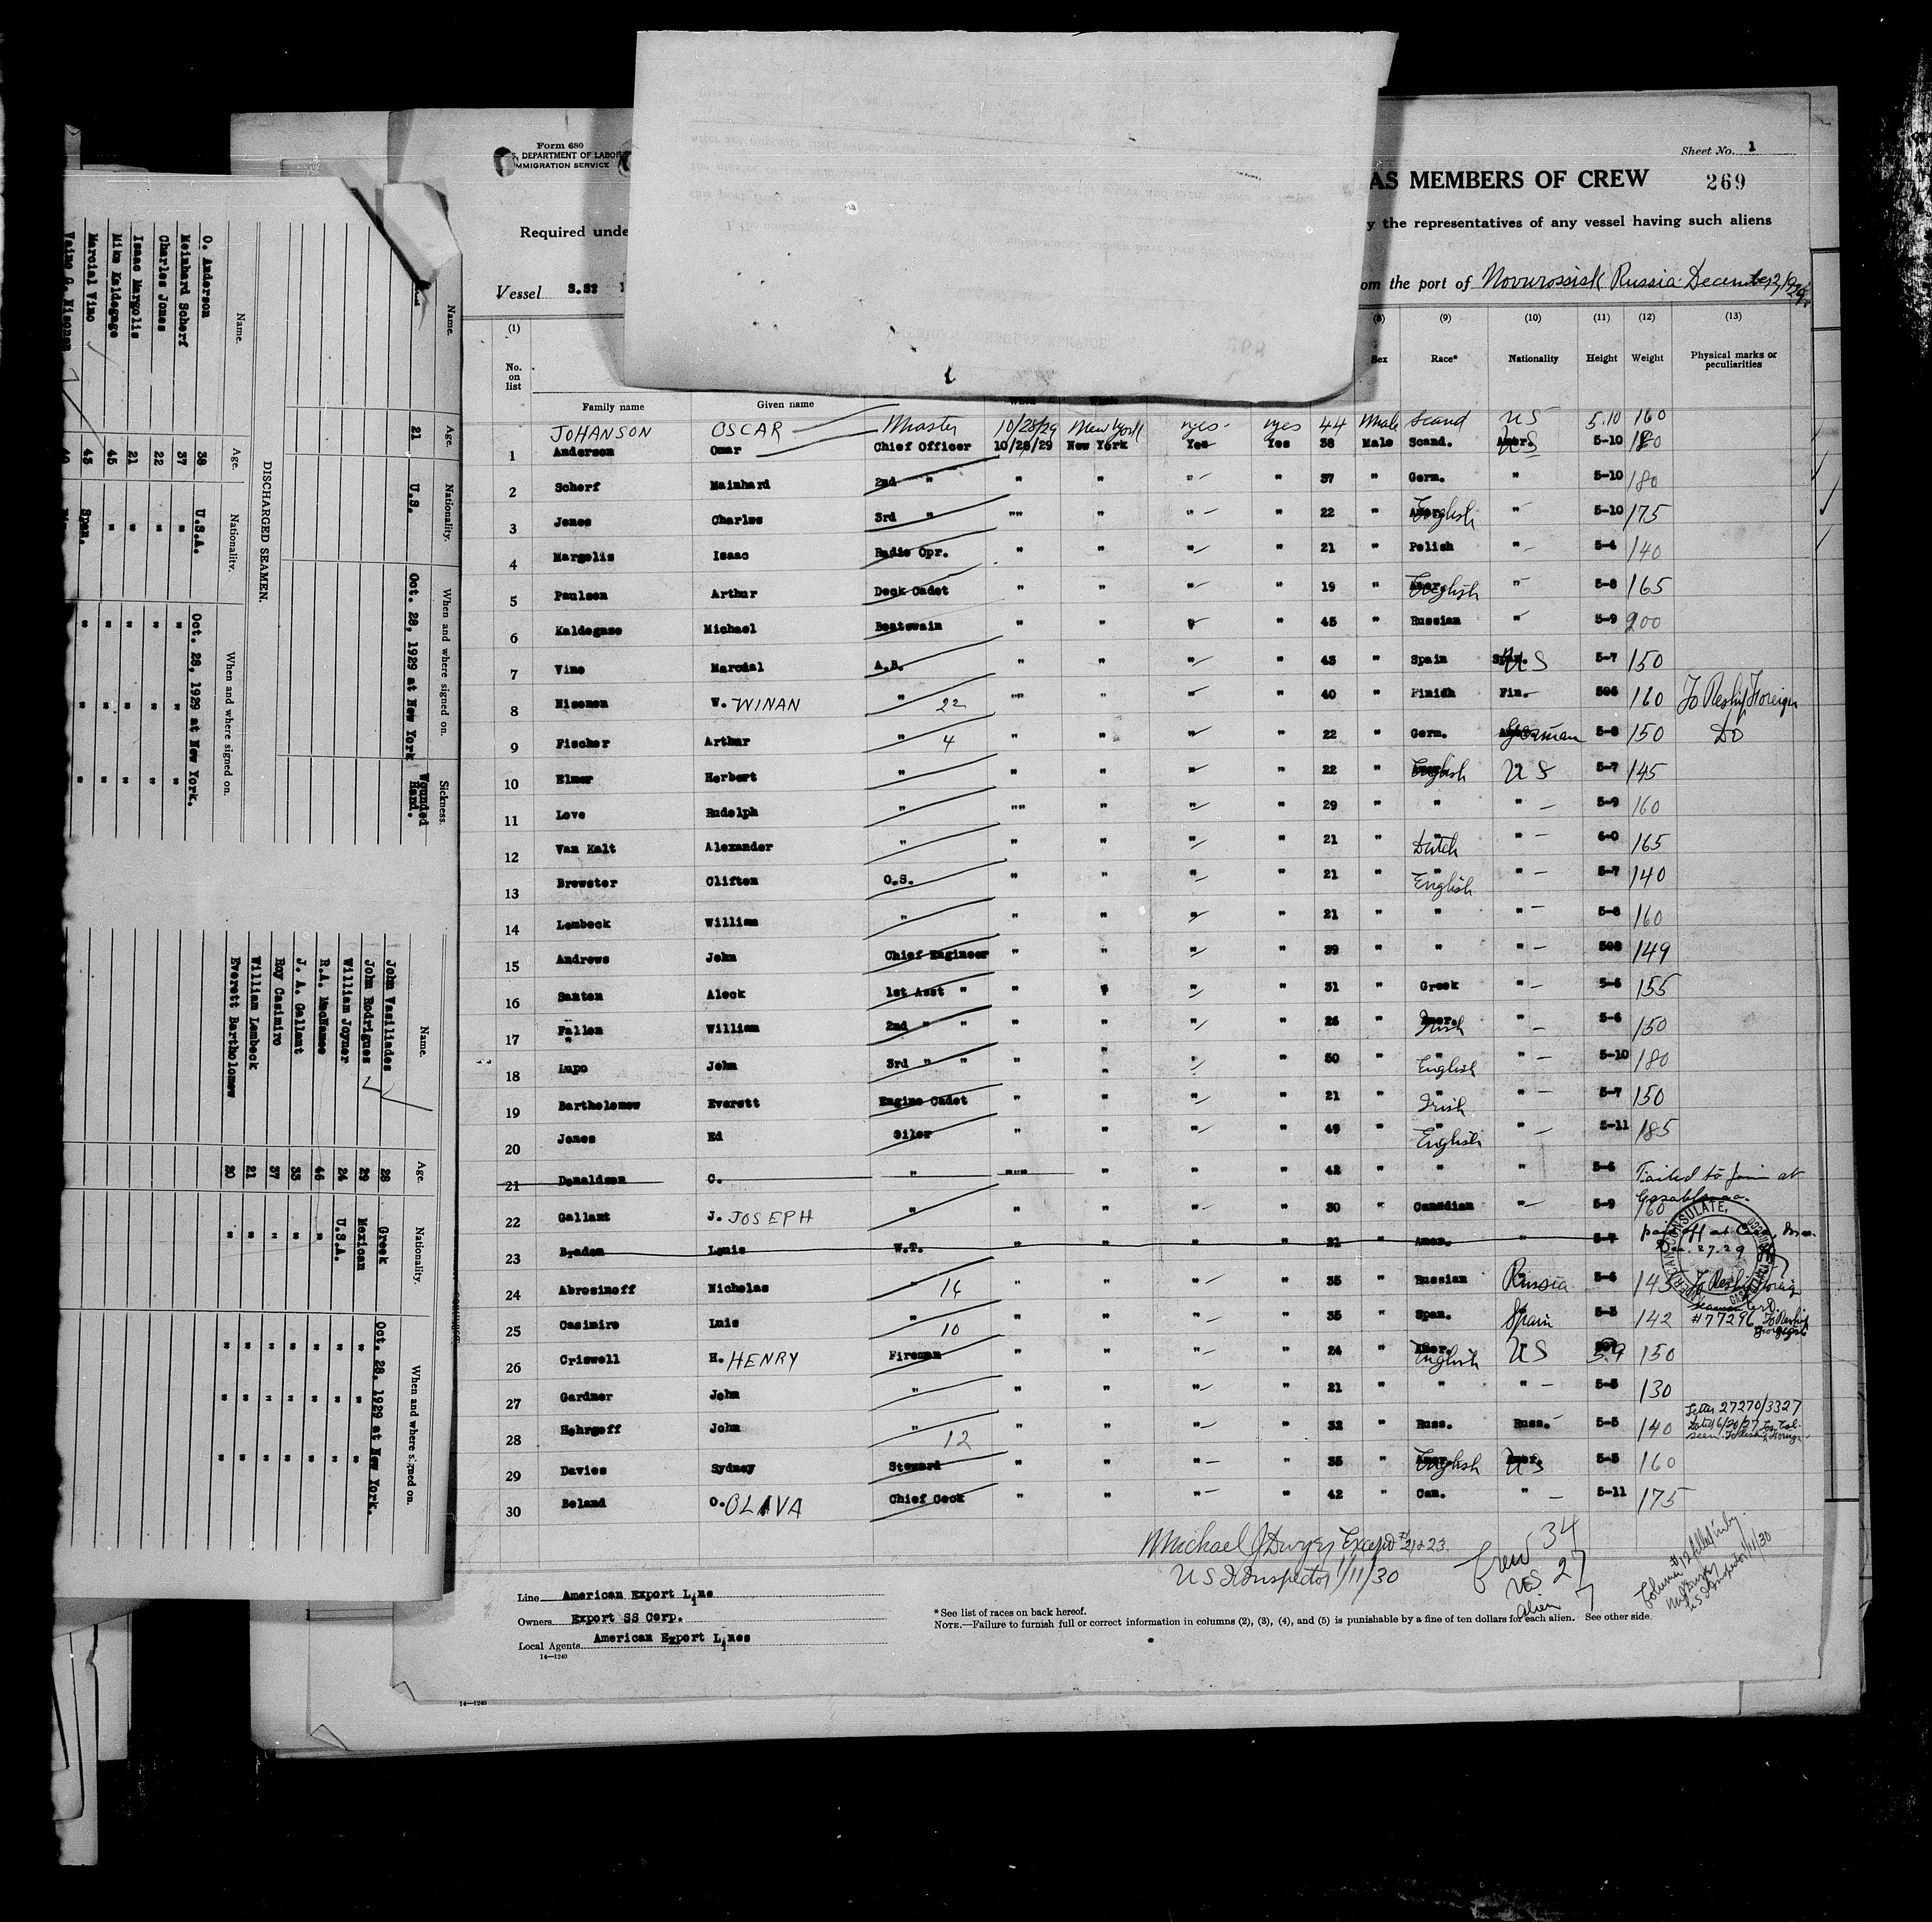 Form 680
DEPARTMENT OF LABOR
IMMIGRATION SERVICE
Sheet No. 1
AS MEMBERS OF CREW 269
Required unde
y the representatives of any vessel having such aliens
Vessel S.S.
om the port of Novurossisk Russia December
(1) (8) (9) (10) (11) (12) (13)
No. on list Family name Given name Sex Race* Nationality Height Weight Physical marks or peculiarities
JOHANSON OSCAR Master 10/28/29 New York yes yes 44 Male Scand US 5.10 160
1 Anderson Omar Chief Officer 10/28/29 New York Yes Yes 38 Male Scand. US 5-10 180
2 Scherf Mainhard 2nd " " " " " 37 " Germ. " 5-10 180
3 Jones Charles 3rd " "" " " " 22 " English " 5-10 175
4 Margolis Isaac Radio Opr. " " " " 21 " Polish " 5-4 140
5 Paulsen Arthur Deck Cadet " " " " 19 " English " 5-8 165
6 Kaldegase Michael Boatswain " " " " 45 " Russian " 5-9 200
7 Vino Marcial A.B. " " " " 43 " Spain Span. US 5-7 150
8 Nisonen W. WINAN " 22 "" " " " 40 " Finish Fin. 506 160 To Reship Foreign
9 Fischer Arthur " 4 " " " " 22 " Germ. German 5-8 150 Do
10 Elmer Herbert " " " " " 22 " English US 5-7 145
11 Love Rudolph " "" " " " 29 " " " 5-9 160
12 Van Kalt Alexander " " " " " 21 " Dutch " 6-0 165
13 Brewster Clifton O.S. " " " " 21 " English " 5-7 140
14 Lembeck William " " " " " 21 " " " 5-8 160
15 Andrews John Chief Engineer " " " " 39 " " " 508 149
16 Santon Aleck 1st Asst " " " " " 31 " Greek " 5-6 155
17 Fallon William 2nd " " " " " " 26 " Amer. Irish " 5-6 150
18 Lupo John 3rd " " " " " " 50 " English " 5-10 180
19 Bartholomew Everett Engine Cadet " " " " 21 " Irish " 5-7 150
20 Jones Ed Oiler " " " " 49 " English " 5-11 185
21 Donaldson C. " """ " " " 42 " " " 5-6 Failed to join at Casablanca.
22 Gallant J. JOSEPH " " " " " 30 " Canadian " 5-9 160
23 Braden Louis W.T. " " " " 21 " Amer. " 5-7 paid off at Dec. 27. 29
AMERICAN CONSULATE,
24 Abrosimoff Nicholas " 14 " " " " 35 " Russian Russia 5-6 145 To Reship Foreign
25 Casimiro Luis " 10 " " " " 35 " Span. Spain 5-5 142 #77296 To Reship
26 Criswell H. HENRY Fireman " " " " 24 " Amer. English US 5.9 150
27 Gardner John " " " " " 21 " " " 5-5 130
28 Hohrgoff John " 12 " " " " 32 " Russ. Russ. 5-5 140 Letter 27270/3327 Dated 6/20/27
29 Davies Sydney Steward " " " " 35 " English US 5-5 160
30 Boland O. OLAVA Chief Cook " " " " 42 " Can. " 5-11 175
Michael J Dwyer Except #21 & 23
US Inspector 1/11/30
Crew 34
US 27
Alien 7
Column #12 filled in by
US Inspector 1/11/30
Line American Export Line
Owners Export SS Corp.
Local Agents American Export Lines
14—1240
* See list of races on back hereof.
NOTE.—Failure to furnish full or correct information in columns (2), (3), (4), and (5) is punishable by a fine of ten dollars for each alien. See other side.
14—1240
Name. Age. Nationality. When and where signed on. Sickness.
21 U.S. Oct. 28, 1929 at New York Wounded Hand.
DISCHARGED SEAMEN.
Name. Age. Nationality. When and where signed on.
O. Anderson 38 U.S.A. Oct. 28, 1929 at New York.
Meinhard Scherf 37 " " " "
Charles Jones 22 " " " "
Isaac Margolis 21 " " " "
Mike Kaldegage 45 " " " "
Marcial Vino 43 Span. " " "
Vaino G. Nisonen 40
Name. Age. Nationality. When and where signed on.
John Vasiliades 28 Greek Oct. 28, 1929 at New York.
John Rodrigues 29 Mexican " " "
William Joyner 24 U.S.A. " " "
R.A. MacNamee 46 " " " "
J. A. Gallant 33 " " " "
Roy Casimiro 37 " " " "
William Lembeck 21 " " " "
Everett Bartholomew 20 " " " "